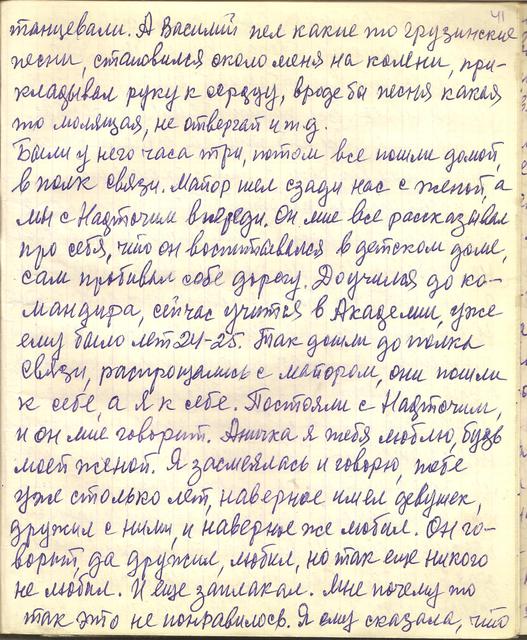 41
танцевали. А Василий пел какие то грузинские
песни, становился около меня на колени, при-
кладывал руку к сердцу, вроде бы песня какая
то молящая, не отвергай и т д.
Были у него часа три, потом все пошли домой,
в полк связи. Майор шел сзади нас с женой, а
мы с Надточим впереди. Он мне все рассказывал
про себя, что он воспитывался в детском доме,
сам пробивал себе дорогу. Доучился до ко-
мандира, сейчас учится в Академии, уже
ему было лет 24-25. Так дошли до полка
связи, распрощались с майором, они пошли
к себе, а я к себе. Постояли с Надточим,
и он мне говорит. Аничка я тебя люблю, будь
моей женой. Я засмеялась и говорю, тебе
уже столько лет, наверное имел девушек,
дружил с ними, и наверное же любил. Он го-
ворит, да дружил, любил, но так еще никого
не любил. И еще заплакал. Мне почему то
так это не понравилось. Я ему сказала, что